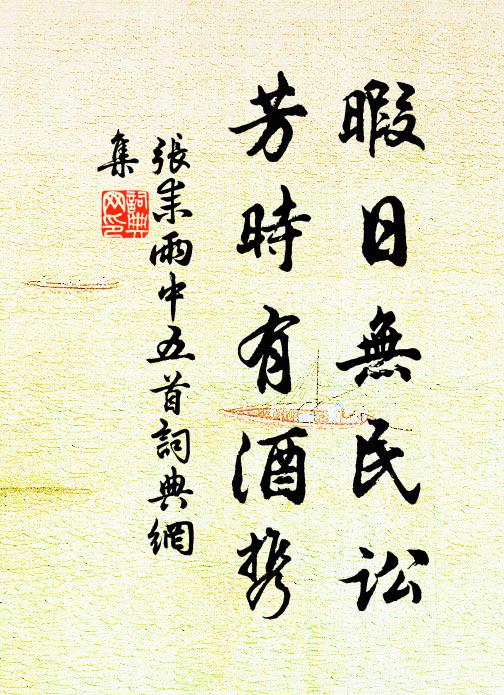 暇日無民訟
芳時有酒携
張耒雨中五首詞典網
集
詞典
网印